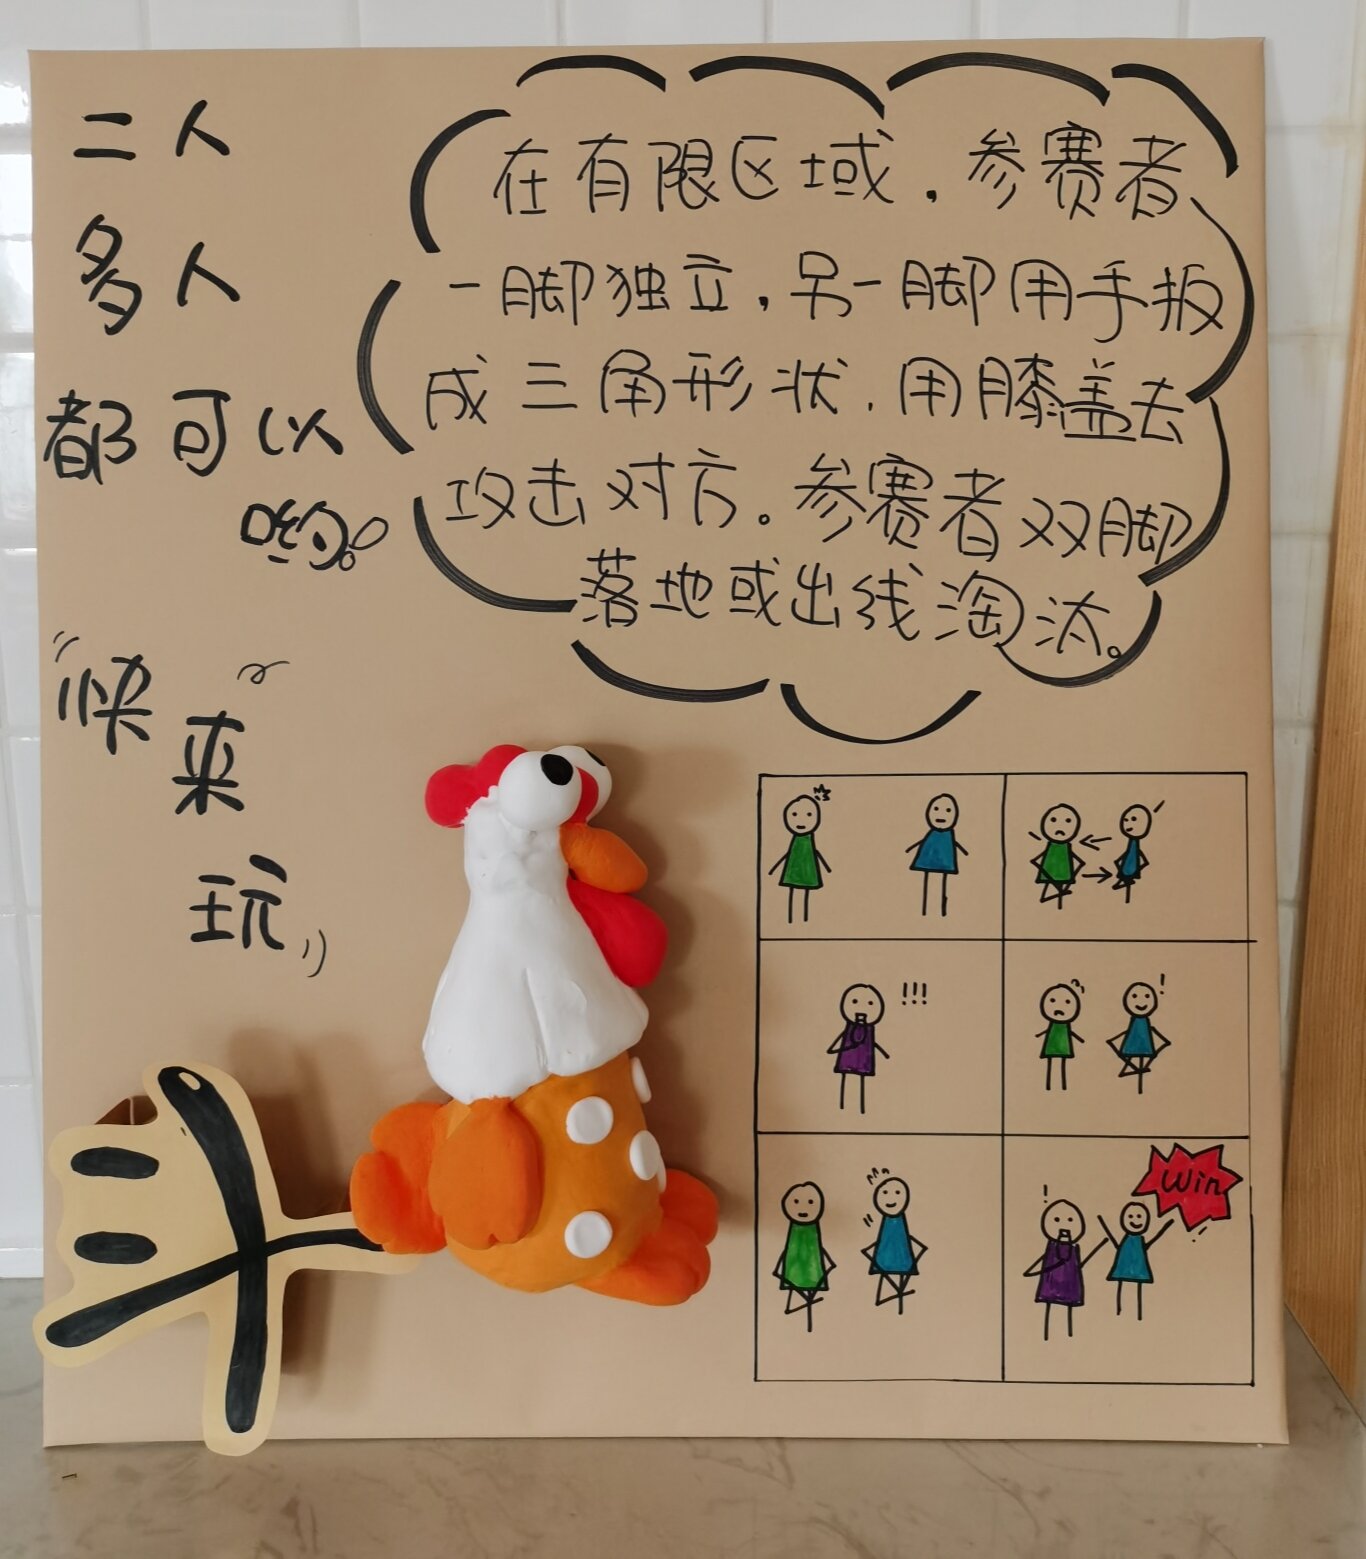 二人
多人
都可以
哟!
快来玩
在有限区域,参赛者
一脚独立,另一脚用手扳
成三角形状,用膝盖去
攻击对方。参赛者双脚
落地或出线淘汰。
斗
!!!
!
!
Win